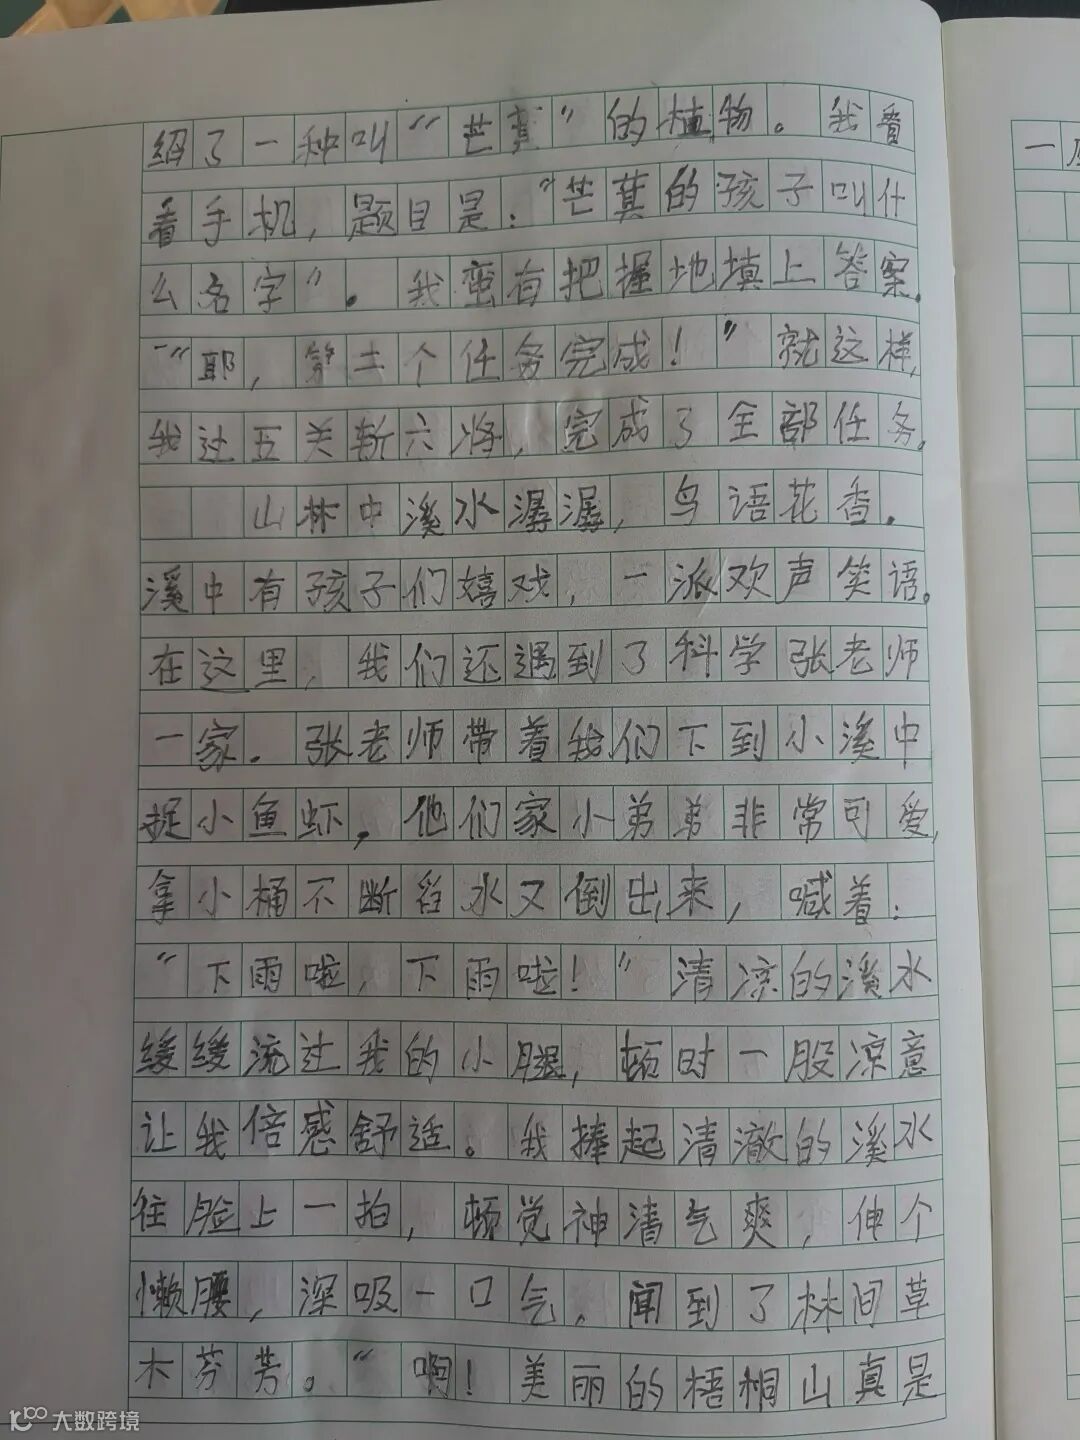 绍了一种叫“芒萁”的植物。我看
看手机，题目是：“芒萁的孩子叫什
么名字”。我蛮有把握地填上答案。
“耶，第二个任务完成！”就这样，
我过五关斩六将，完成了全部任务。
山林中溪水潺潺，鸟语花香。
溪中有孩子们嬉戏，一派欢声笑语。
在这里，我们还遇到了科学张老师
一家。张老师带着我们下到小溪中
捉小鱼虾，他们家小弟弟非常可爱，
拿小桶不断舀水又倒出来，喊着：
“下雨啦，下雨啦！”清凉的溪水
缓缓流过我的小腿，顿时一股凉意
让我倍感舒适。我捧起清澈的溪水
往脸上一拍，顿觉神清气爽，伸个
懒腰，深吸一口气，闻到了林间草
木芬芳。“啊！美丽的梧桐山真是
一
大数跨境